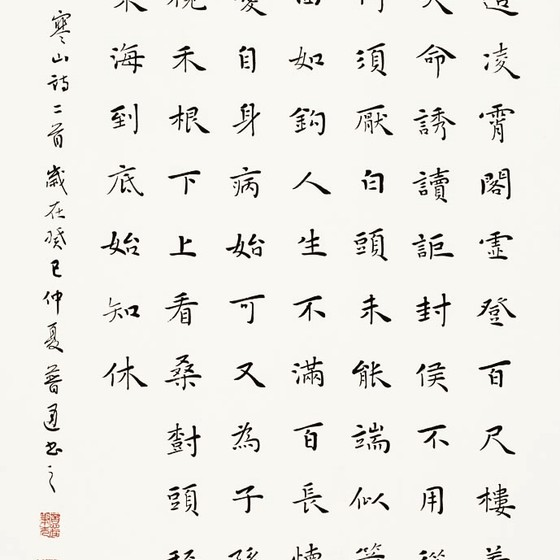 造凌霄閣虛登百尺樓養
夭命誘讀詎封侯不用從
何須厭白頭未能端似箭
曲如鈎人生不滿百長懷
憂自身病始可又為子孫
禾根下上看桑樹頭秤
東海到底始知休
寒山詩二首歲在癸巳仲夏普通书之